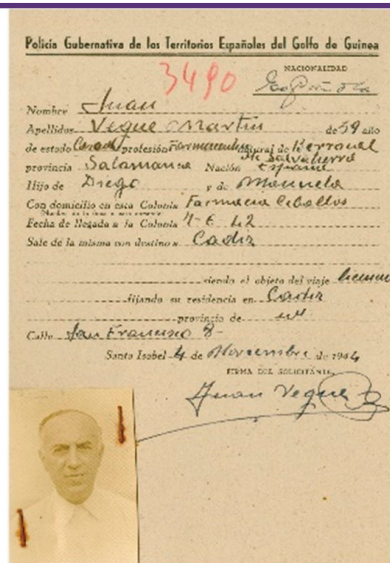 Policía Gubernativa de los Territorios Españoles del Golfo de Guinea
3490
NACIONALIDAD
Española
Nombre Juan
Apellidos Vegue Martín de 59 año
de estado Casado profesión Farmaceutico natural de Berrocal
de Salvatierra
provincia Salamanca Nación Español
Hijo de Diego y de Manuela
Con domicilio en esta Colonia Farmacia Ceballos
Fecha de llegada a la Colonia 4-6-42
Sale de la misma con destino a Cadiz
siendo el objeto del viaje licencia
fijando su residencia en Cadiz
provincia de id
Calle San Francisco 8
Santo Isabel 4 de Noviembre de 1944
FIRMA DEL SOLICITANTE,
Juan Vegue